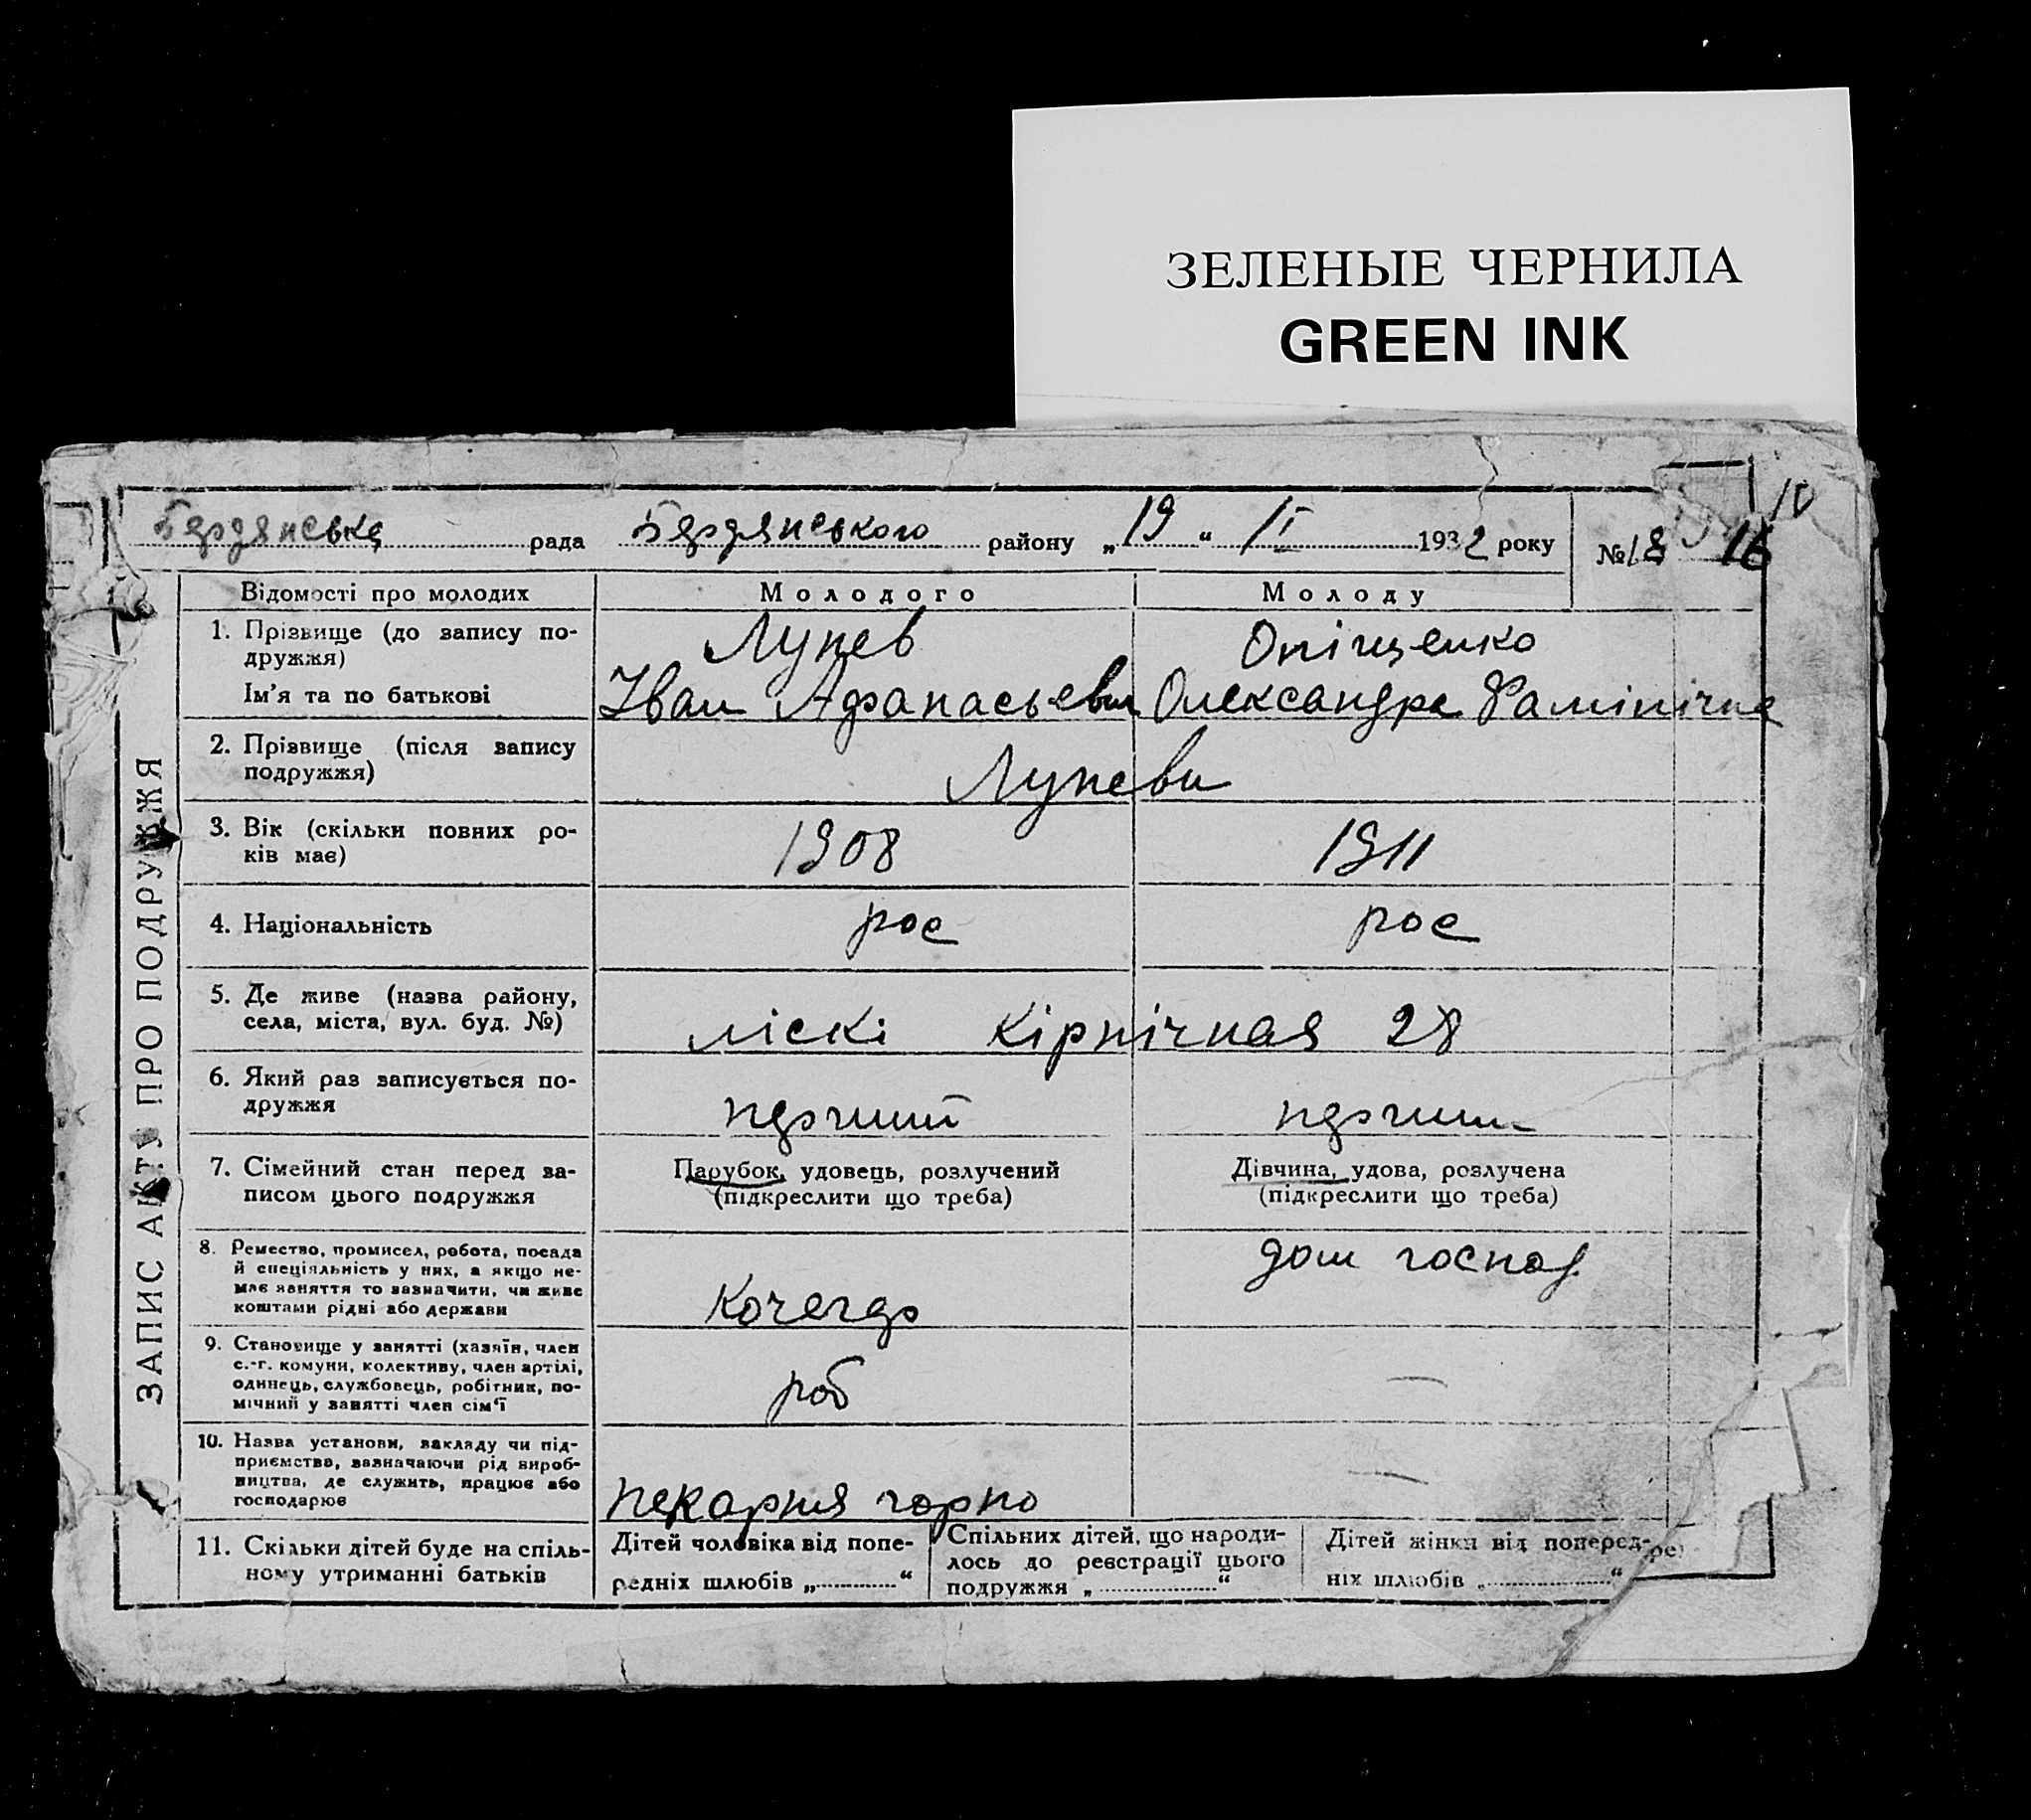 ЗЕЛЕНЫЕ ЧЕРНИЛА
GREEN INK
Бердянська рада Бердянського району „19“ II 1932 року №18 16
10
ЗАПИС АКТУ ПРО ПОДРУЖЖЯ
Відомості про молодих Молодого Молоду
1. Прізвище (до запису по-
дружжя) Лунев Оніщенко
Ім'я та по батькові Іван Афанасьевич Олександра
2. Прізвище (після запису
подружжя) Луневи
3. Вік (скільки повних ро-
ків має) 1908 1911
4. Національність рос рос
5. Де живе (назва району,
села, міста, вул. буд. №) ліскі Кірпічная 28
6. Який раз записується по-
дружжя перший перший
7. Сімейний стан перед за-
писом цього подружжя
Парубок, удовець, розлучений
(підкреслити що треба)
Дівчина, удова, розлучена
(підкреслити що треба)
8. Ремество, промисел, робота, посада
й спеціяльність у них, а якщо не-
має заняття то зазначити, чи живе
коштами рідні або держави
Кочегар
дом господ
9. Становище у занятті (хазяїн, член
с.-г. комуни, колективу, член артілі,
одинець, службовець, робітник, по-
мічний у занятті член сім'ї
роб —
10. Назва установи, закладу чи під-
приємства, зазначаючи рід вироб-
ництва, де служить, працює або
господарює
пекарня горпо —
11. Скільки дітей буде на спіль-
ному утриманні батьків
Дітей чоловіка від попе-
редніх шлюбів „ “
Спільних дітей, що народи-
лось до реєстрації цього
подружжя „ “
Дітей жінки від поперед-
ніх шлюбів „ “